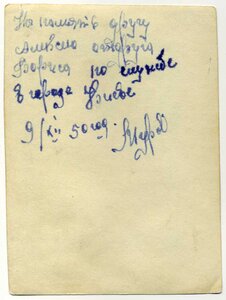 На память другу
от друга
Бориса по службе
в городе Киеве
9/XII 50 год.